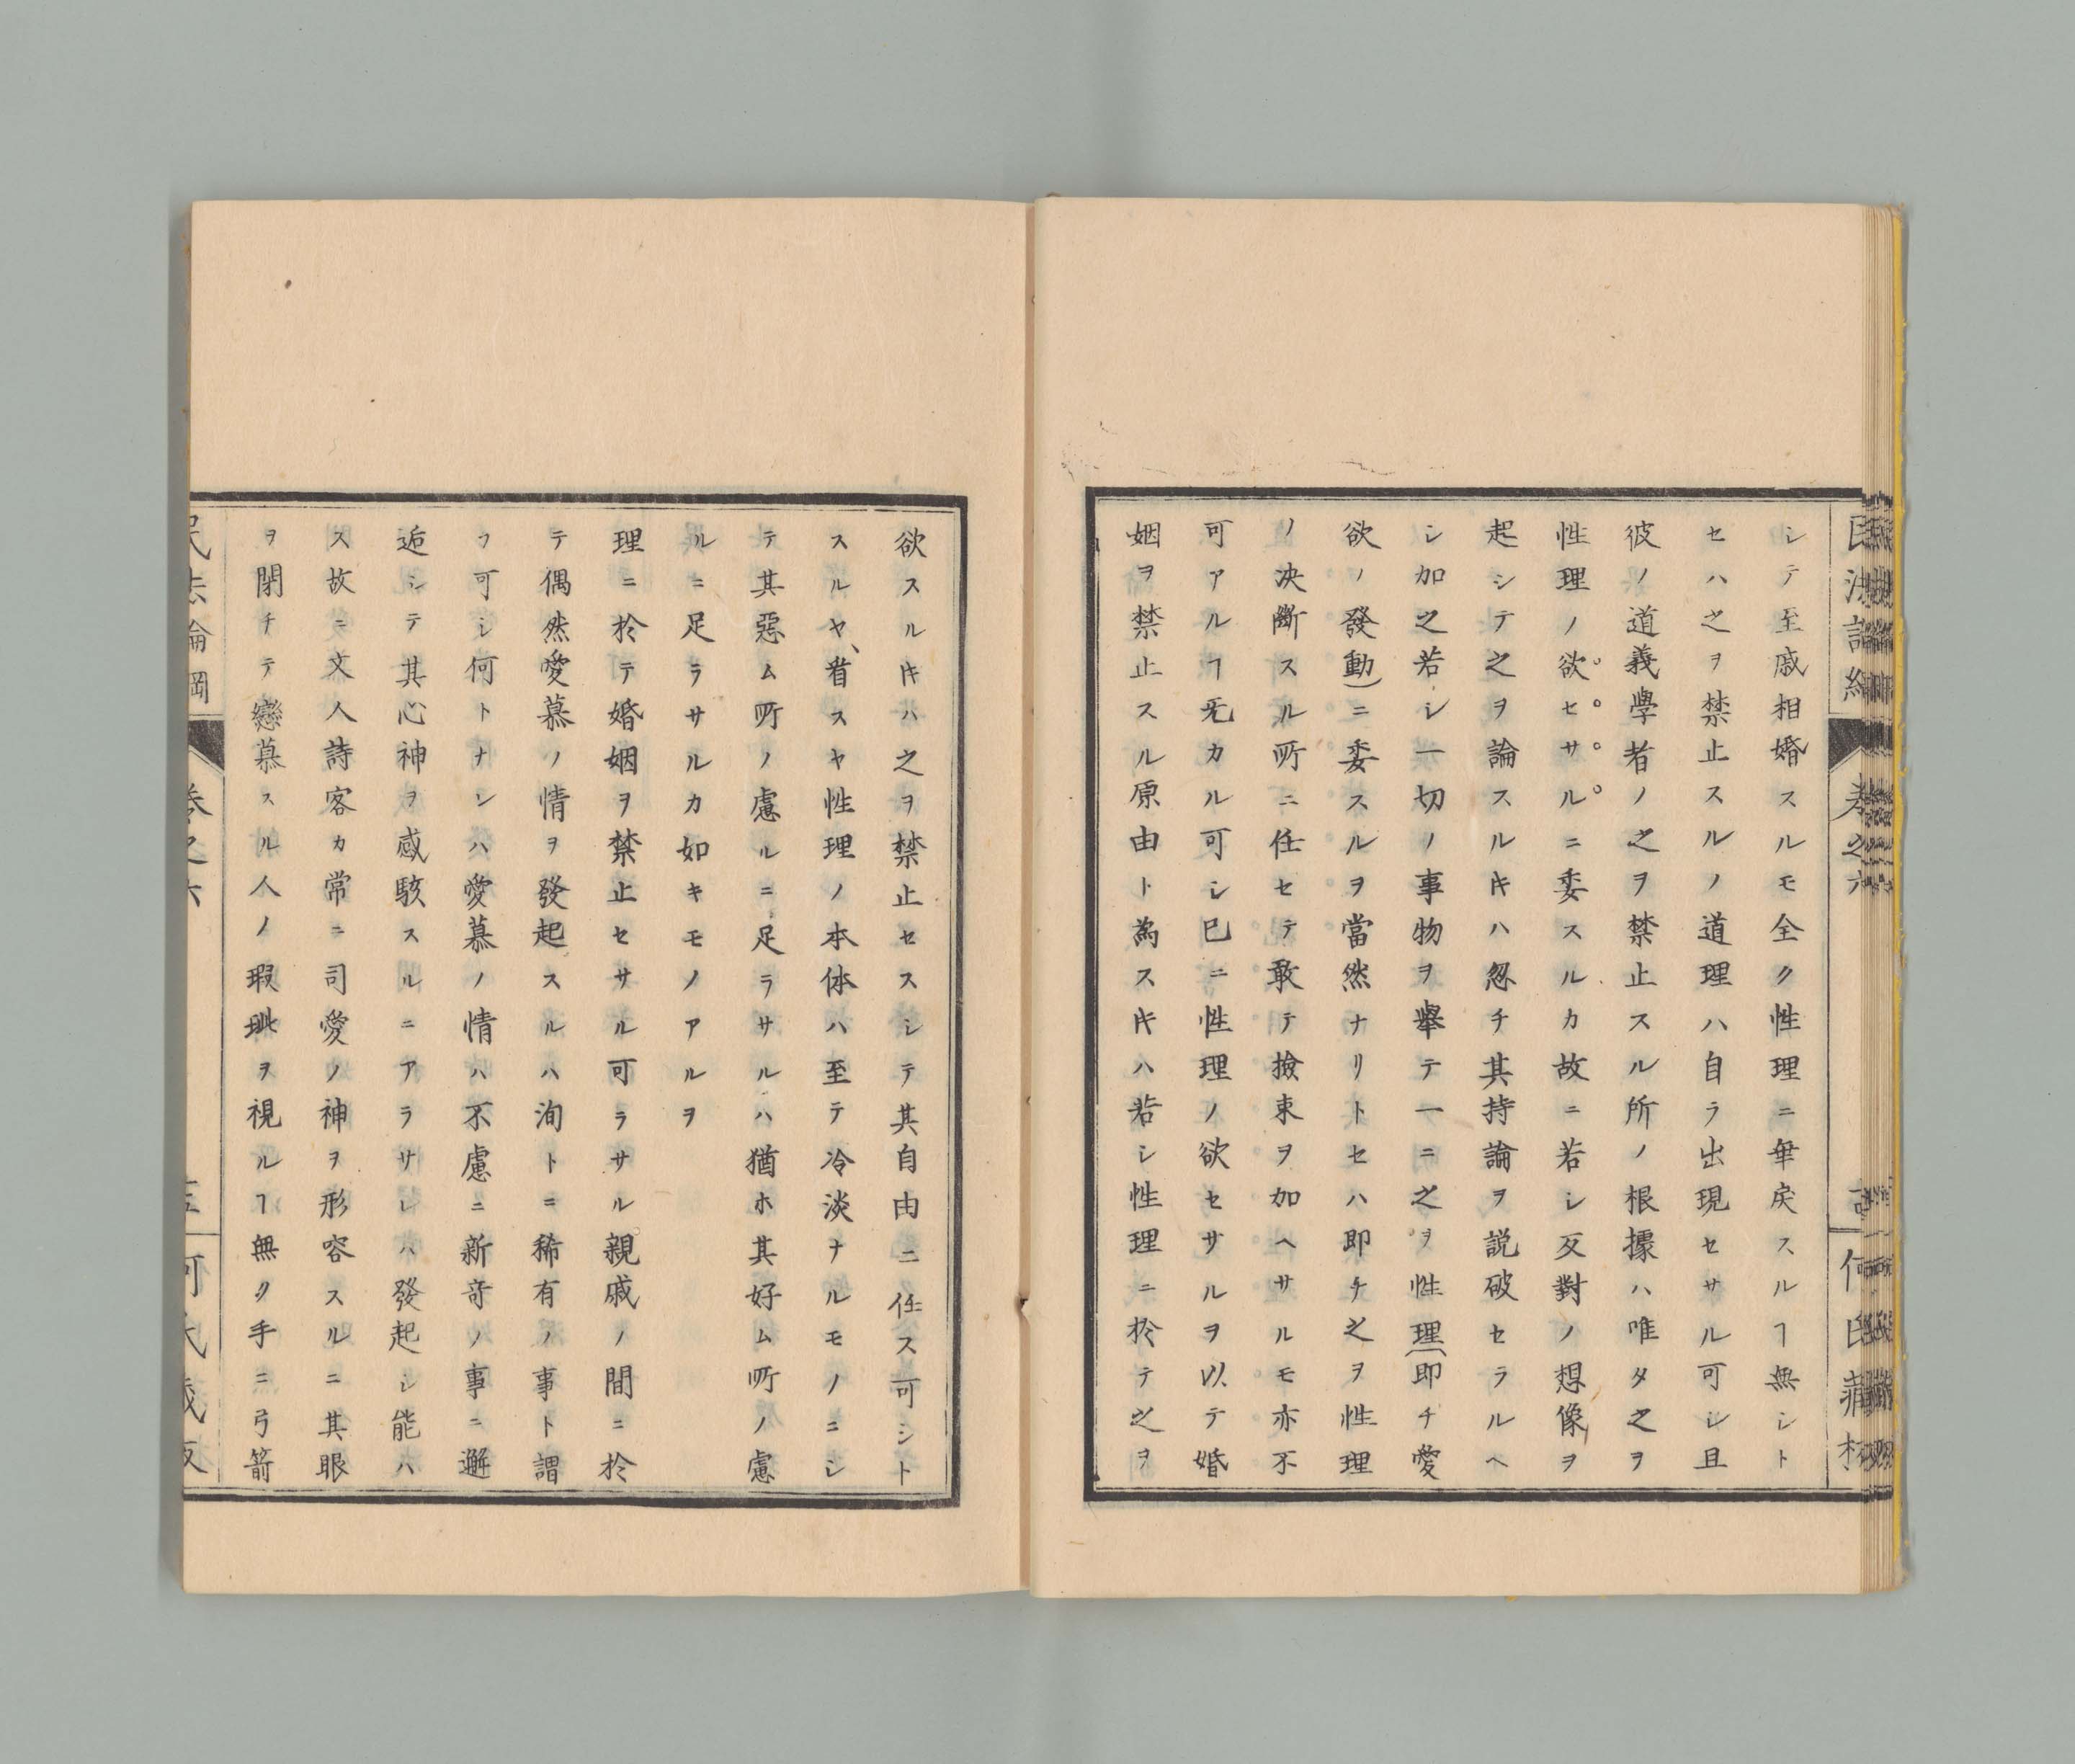 シテ至戚相婚スルモ全ク性理ニ乖戾スルヿ無シト
セハ之ヲ禁止スルノ道理ハ自ラ出現セサル可シ且
彼ノ道義學者ノ之ヲ禁止スル所ノ根據ハ唯タ之ヲ
性理ノ欲セサルニ委スルカ故ニ若シ反對ノ想像ヲ
起シテ之ヲ論スルキハ忽チ其持論ヲ説破セラルヘ
シ加之若シ一切ノ事物ヲ舉テ一ニ之ヲ性理(即チ愛
欲ノ發動)ニ委スルヲ當然ナリトセハ即チ之ヲ性理
ノ决斷スル所ニ任セテ敢テ撿束ヲ加ヘサルモ亦不
可アルヿ无カル可シ已ニ性理ノ欲セサルヲ以テ婚
姻ヲ禁止スル原由ト為スキハ若シ性理ニ於テ之ヲ
欲スルキハ之ヲ禁止セスシテ其自由ニ任ス可シト
スルヤ、省スヤ性理ノ本体ハ至テ冷淡ナルモノニシ
テ其惡ム所ノ慮ルニ足ラサルハ猶ホ其好ム所ノ慮
ルニ足ラサルカ如キモノアルヲ
理ニ於テ婚姻ヲ禁止セサル可ラサル親戚ノ間ニ於
テ偶然愛慕ノ情ヲ發起スルハ洵トニ稀有ノ事ト謂
フ可シ何トナシハ愛慕ノ情ハ不慮ニ新奇ノ事ニ邂
逅シテ其心神ヲ感駭スルニアラサレハ發起シ能ハ
ス故ニ文人詩客カ常ニ司愛ノ神ヲ形容スルニ其眼
ヲ閉チテ戀慕スル人ノ瑕玼ヲ視ルヿ無ク手ニ弓箭
卷之六